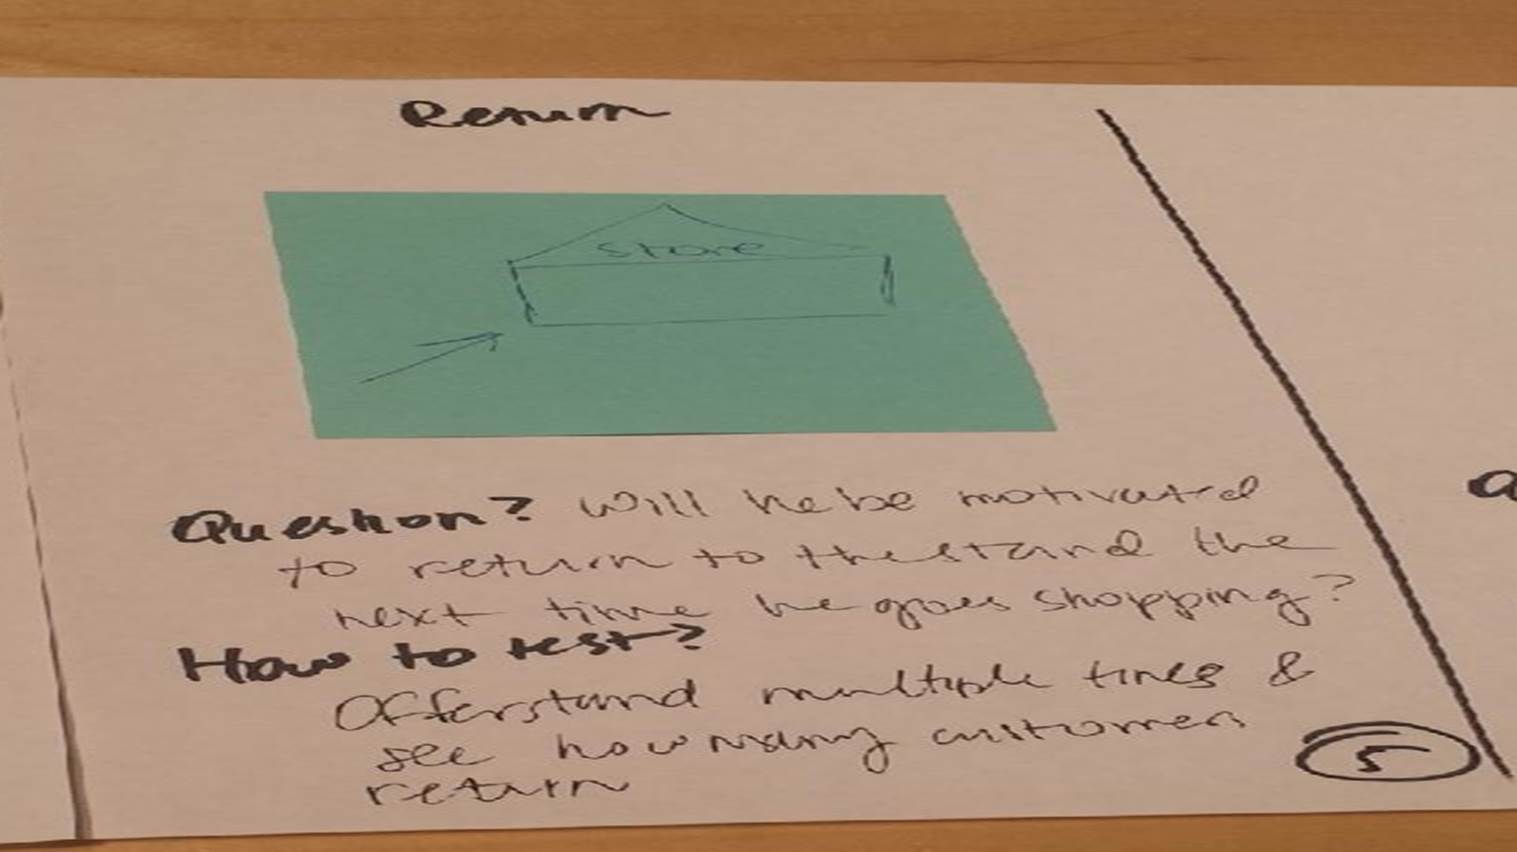 Return
Store
Question? Will he be motivated
to return to the stand the
next time he goes shopping?
How to test?
Offer stand multiple times &
see how many customers
return
5